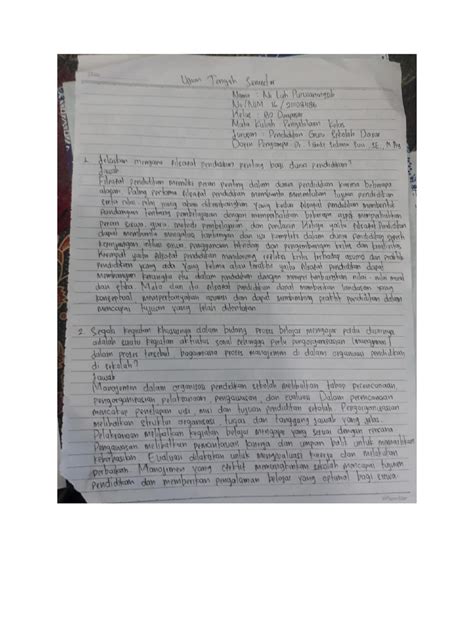 Ujian Tengah Semester
Nama : Ni Luh
No/NIM 16 /
Kelas :
Mata Kuliah Pengelolaan Kelas
Jurusan : Pendidikan Guru Sekolah Dasar
Dosen Pengampu : Dr. SE., M.Ag
1. Jelaskan mengapa filsafat pendidikan penting bagi dunia pendidikan?
Jawab
Filsafat pendidikan memiliki peran penting dalam dunia pendidikan karena beberapa
alasan. Paling pertama filsafat pendidikan membantu menentukan tujuan pendidikan
serta nilai-nilai yang akan dikembangkan. Yang kedua filsafat pendidikan membentuk
pandangan tentang pembelajaran dengan mempertimbangkan beberapa
peran siswa, guru, metode pembelajaran dan penilaian. Ketiga yaitu filsafat pendidikan
dapat membantu mengatasi tantangan dan isu kompleks dalam dunia pendidikan seperti
penggunaan teknologi dan pengembangan kritis dan kreativitas
Keempat yaitu filsafat pendidikan mendorong refleksi kritis terhadap asumsi dan praktik
pendidikan yang ada. Yang kelima atau terakhir yaitu filsafat pendidikan dapat
membangun kerangka etis dalam pendidikan dengan nilai-nilai moral
dan etika. Maka dari itu filsafat pendidikan dapat memberikan landasan yang
konseptual mempertanyakan asumsi dan dapat membimbing praktik pendidikan dalam
mencapai tujuan yang telah ditentukan
2. Segala kegiatan khususnya dalam bidang proses belajar mengajar pada dasarnya
adalah suatu kegiatan aktivitas sosial sehingga perlu pengorganisasian (manajemen)
dalam proses tersebut bagaimana proses manajemen di dalam organisasi pendidikan
di sekolah?
Jawab
Manajemen dalam organisasi pendidikan sekolah melibatkan tahap perencanaan,
pengorganisasian, pelaksanaan, pengawasan, dan evaluasi. Dalam perencanaan
mencakup penetapan visi, misi dan tujuan pendidikan sekolah. Pengorganisasian
melibatkan struktur organisasi, tugas dan tanggung jawab yang jelas.
Pelaksanaan melibatkan kegiatan belajar mengajar yang sesuai dengan rencana
Pengawasan melibatkan pemantauan kinerja dan umpan balik untuk memastikan
keberhasilan. Evaluasi dilakukan untuk mengevaluasi kinerja dan melakukan
perbaikan. Manajemen yang efektif memungkinkan sekolah mencapai tujuan
pendidikan dan memberikan pengalaman belajar yang optimal bagi siswa.